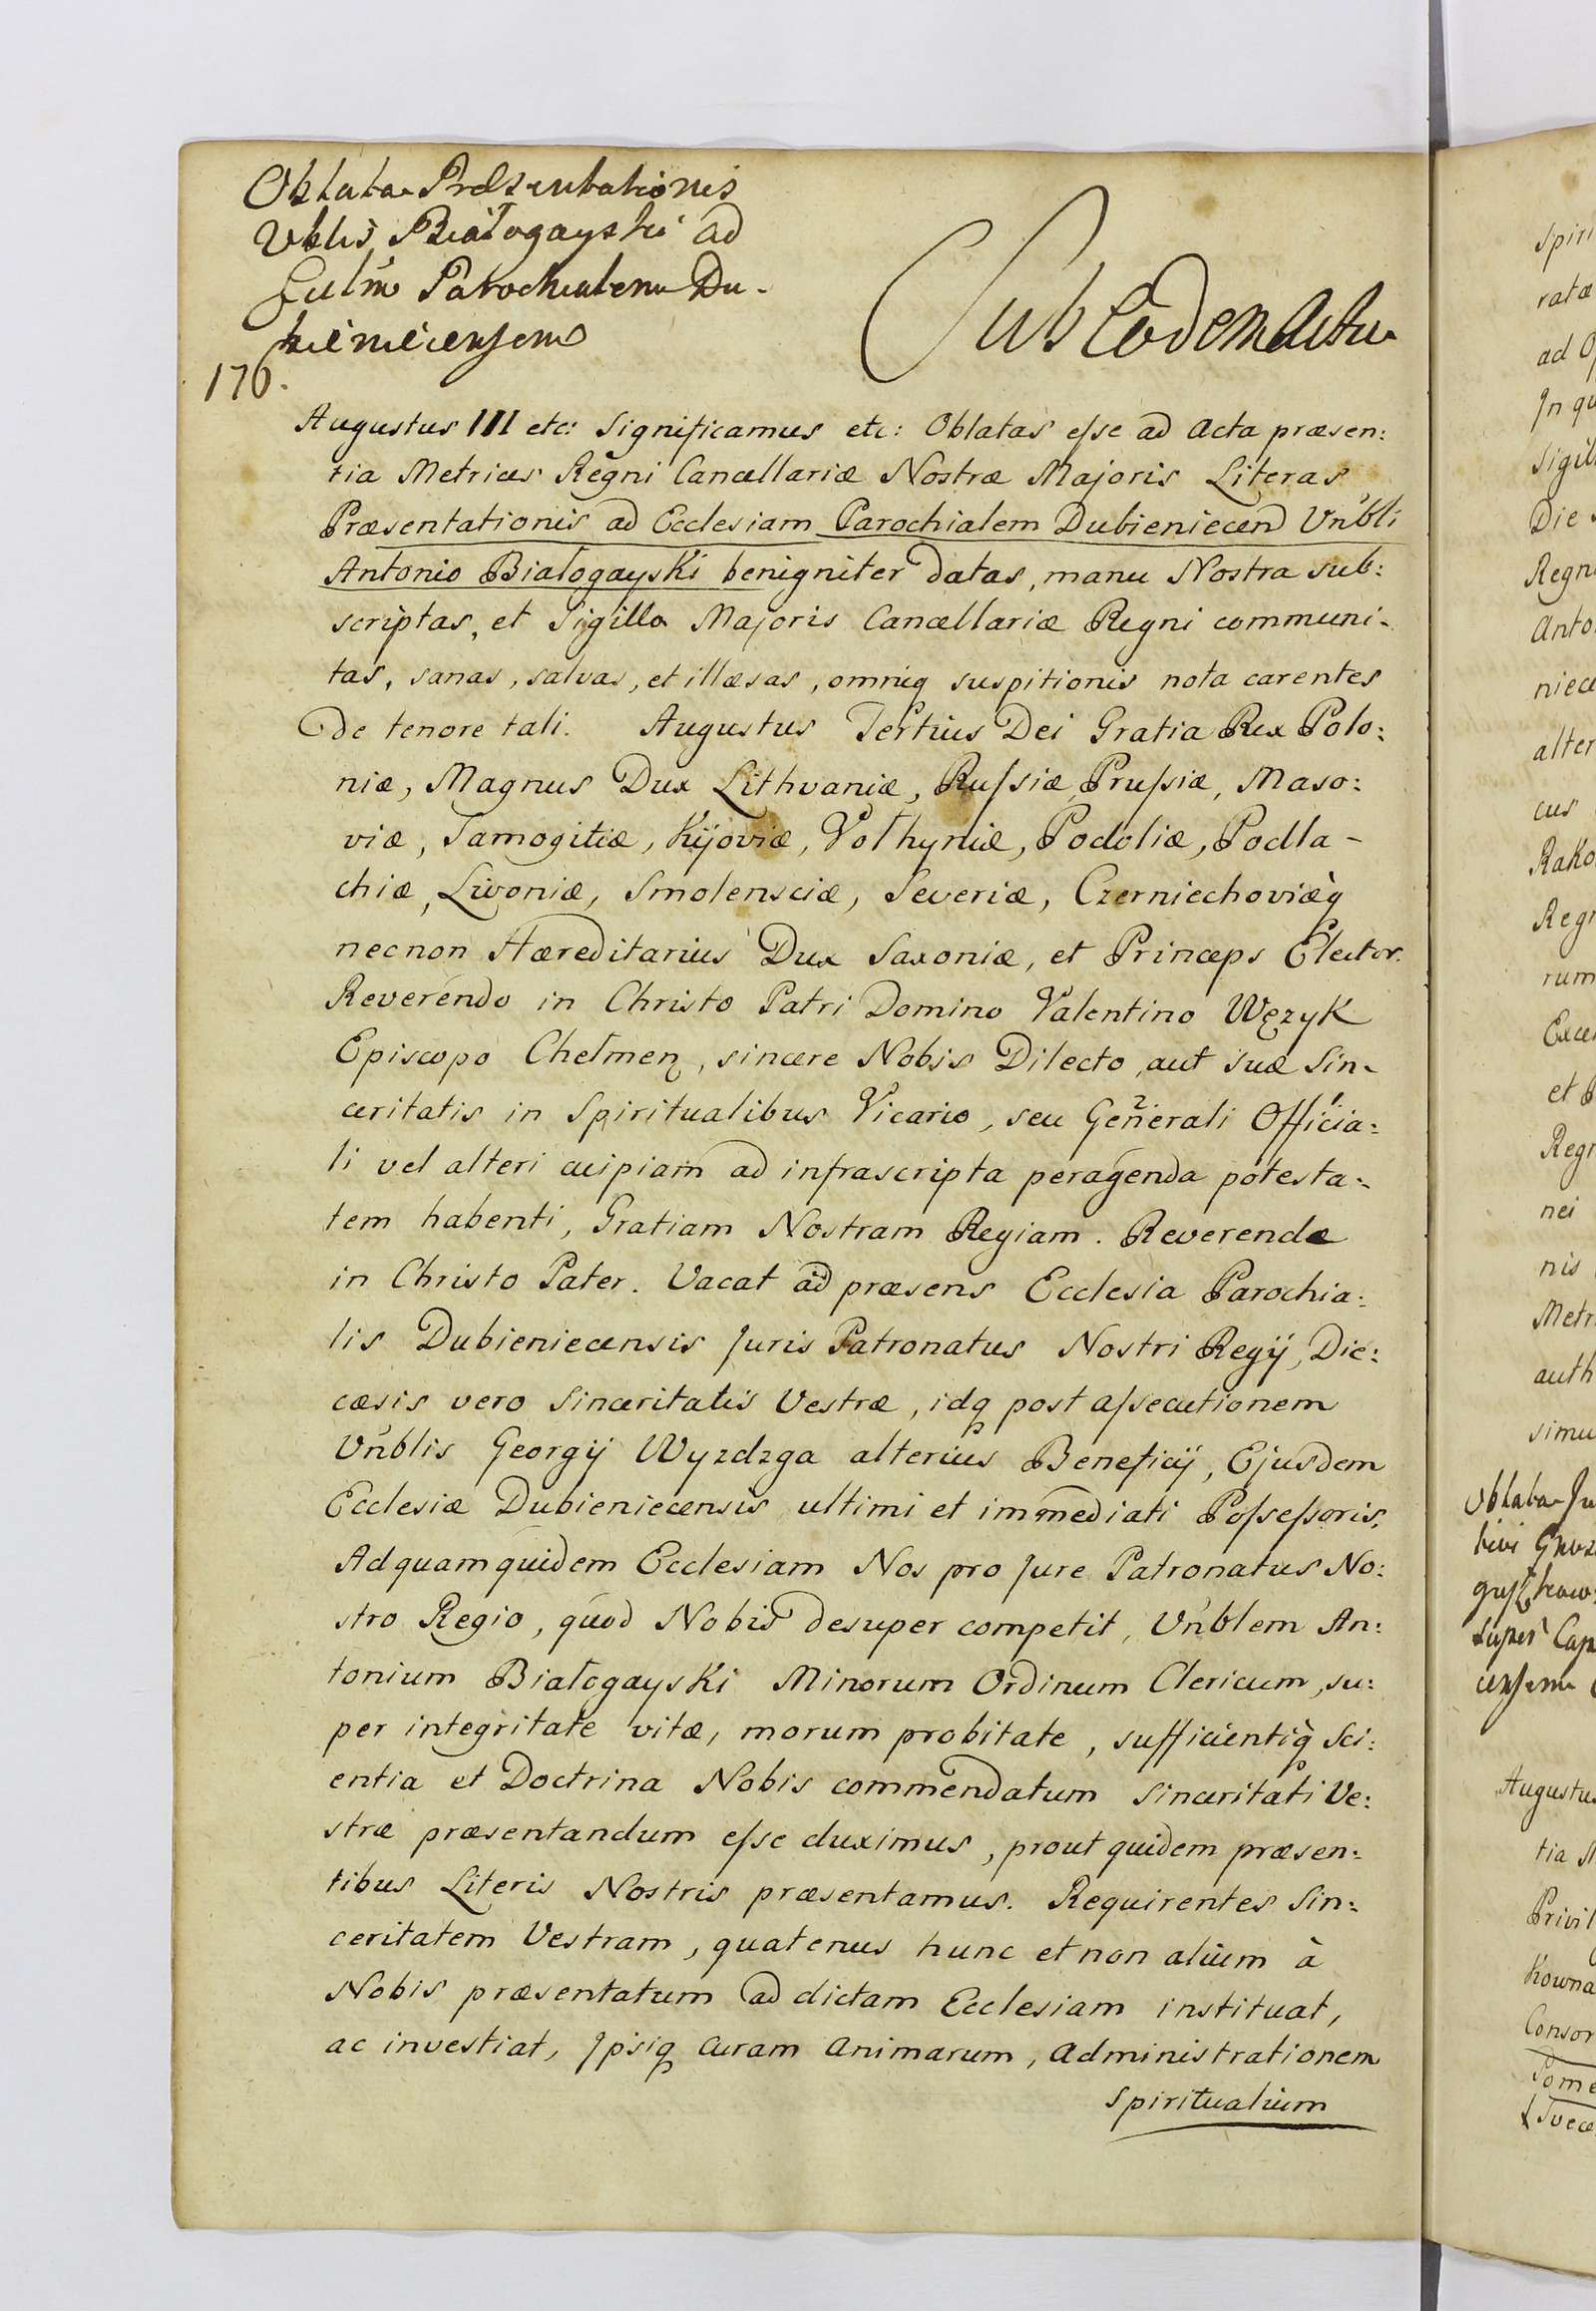 Oblata Præsentationis
Vblis Białogayski ad
Eccliam Parochialem Du-
bieniecensem
176.
Sub Eodem Actu
Augustus III etc: Significamus etc: Oblatas eſse ad Acta præsen:
tia Metrices Regni Cancellariæ Nostræ Majoris Literas
Præsentationis ad Ecclesiam Parochialem Dubieniecen Vnbli
Antonio Białogayski benigniter datas, manu Nostra sub:
scriptas, et Sigillo Majoris Cancellariæ Regni communi-
tas, sanas, salvas, et illæsas, omniq suspitionis nota carentes
De tenore tali. Augustus Tertius Dei Gratia Rex Polo:
niæ, Magnus Dux Lithvaniæ, Ruſsiæ, Pruſsiæ, Maso:
viæ, Samogitiæ, Kijoviæ, Vołhyniæ, Podoliæ, Podla-
chiæ, Livoniæ, Smolensciæ, Severiæ, Czerniechoviæq
necnon Hæreditarius Dux Saxoniæ, et Princeps Elector.
Reverendo in Christo Patri Domino Valentino Węzyk
Episcopo Chełmen, sincere Nobis Dilecto, aut suæ Sin-
ceritatis in Spiritualibus Vicario, seu Generali Officia:
li vel alteri cuipiam ad infrascripta peragenda potesta:
tem habenti, Gratiam Nostram Regiam. Reverende
in Christo Pater. Vacat ad præsens Ecclesia Parochia:
lis Dubieniecensis Juris Patronatus Nostri Regij, Die:
cæsis vero Sinceritatis Vestræ, idq post aſsecutionem
Vnblis Georgij Wyzdzga alterius Beneficij, Ejusdem
Ecclesiæ Dubieniecensis ultimi et immediati Poſseſsoris.
Ad quam quidem Ecclesiam Nos pro Jure Patronatus No:
stro Regio, quod Nobis desuper competit, Vnblem An:
tonium Białogayski Minorum Ordinum Clericum, su:
per integritate vitæ, morum probitate, sufficientiq Sci:
entia et Doctrina Nobis commendatum Sinceritati Ve:
stræ præsentandum eſse duximus, prout quidem præsen:
tibus Literis Nostris præsentamus. Requirentes Sin:
ceritatem Vestram, quatenus hunc et non alium à
Nobis præsentatum ad dictam Ecclesiam instituat,
ac investiat, Jpsiq Curam Animarum, Administrationem
Spiritualium
Spiri
ratæ
ad
Jn qu
Sigil
Die
Regni
Anto
niece
alter
cus
Rako
Regn
rum
Exce
et
Regn
nei
nis
Metr
auth
simu
Oblata Ju
super Cap
Augustus
tia
Privil
Kowna
Consor
Pome